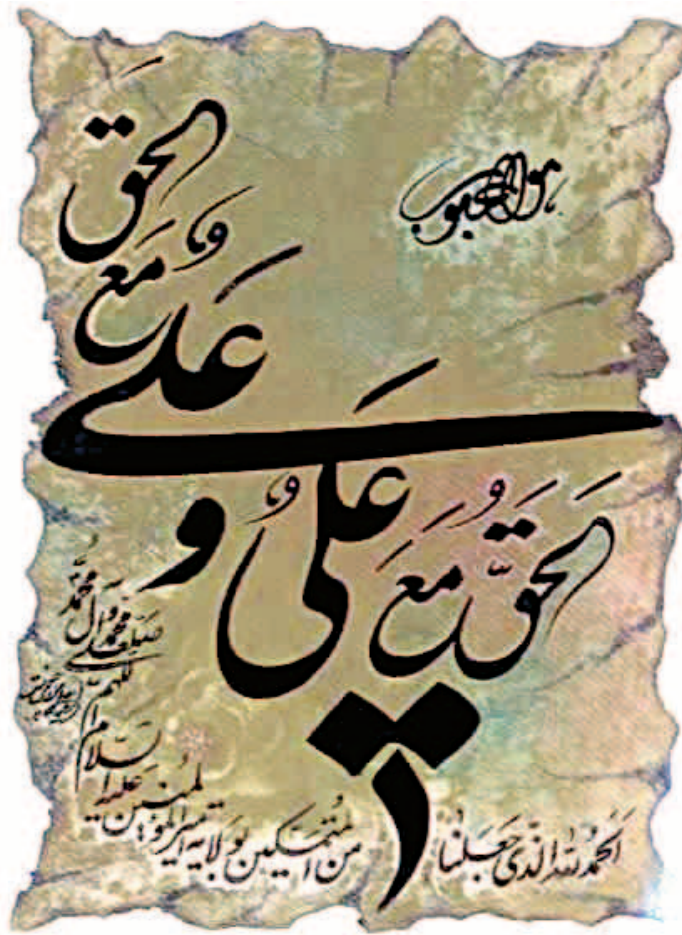 هو المحبوب
علیٌ مع الحق
و
الحقُّ مَعَ علیٌ
الحمدُ للهِ الّذی جَعَلَنا من المُتَمَسِّکین بولایةِ امیرالمؤمنین علیه السّلام
اللهمّ صل علی محمّد و آل محمّد